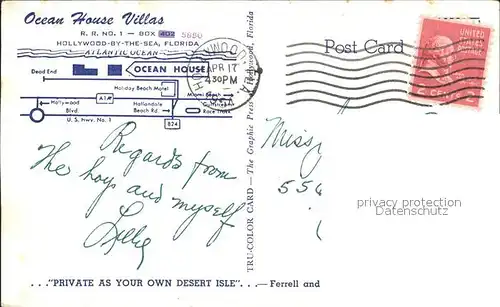 Ocean House Villas
R. R. NO. 1 - BOX 402 5690
HOLLYWOOD-BY-THE-SEA, FLORIDA
ATLANTIC OCEAN
Dead End
OCEAN HOUSE
Holiday Beach Motel
A1A
Hollywood
Blvd.
Hallandale
Beach Rd.
Miami Beach
Gulfstream
Race Track
U. S. Hwy. No. 1
824
HOLLYWOOD
APR 17
430PM
FLA
Regards from
The boys and myself
TRU-COLOR CARD — The Graphic Press — Hollywood, Florida
Post Card
UNITED
STATES
Miss
556
privacy protection
Datenschutz
..."PRIVATE AS YOUR OWN DESERT ISLE"...—Ferrell and